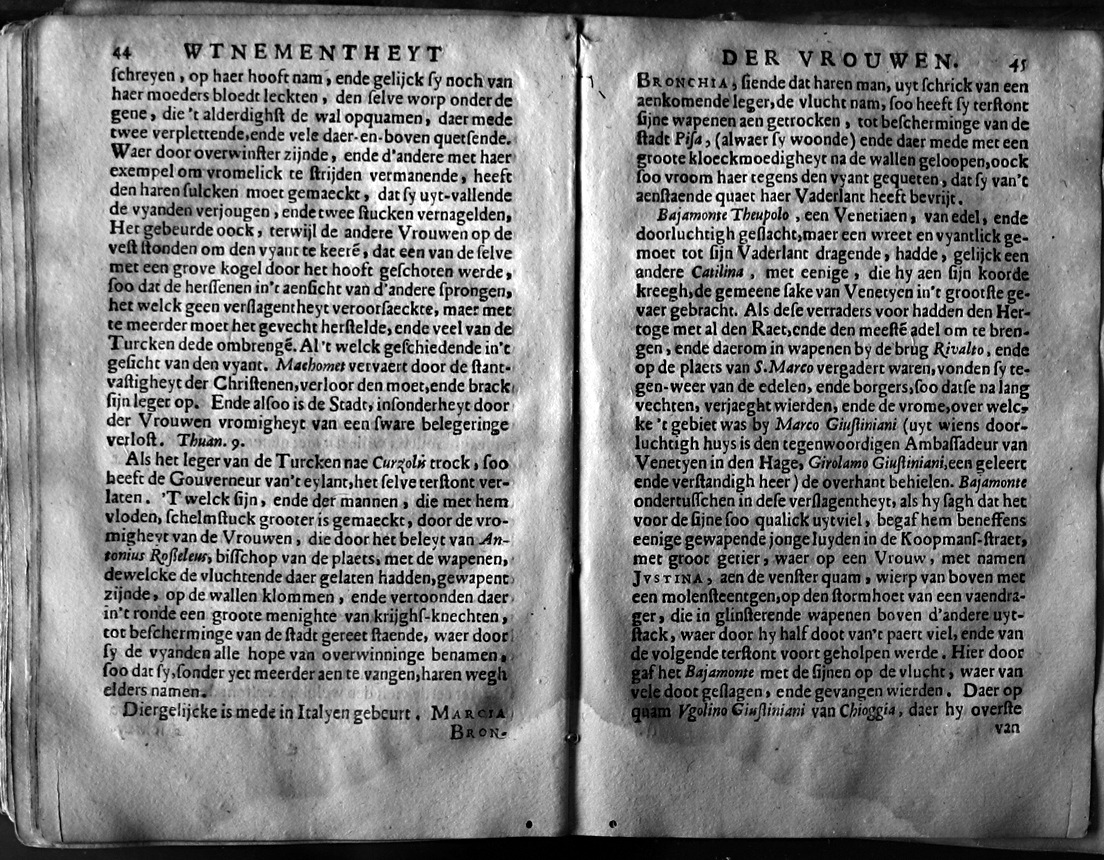 44 WTNEMENTHEYT
ſchreyen, op haer hooft nam, ende gelijck ſy noch van
haer moeders bloedt leckten, den ſelve worp onder de
gene, die 't alderdighſt de wal opquamen, daer mede
twee verplettende, ende vele daer-en-boven quetſende.
Waer door overwinſter zijnde, ende d'andere met haer
exempel om vromelick te ſtrijden vermanende, heeft
den haren ſulcken moet gemaeckt, dat ſy uyt-vallende
de vyanden verjougen, ende twee ſtucken vernagelden,
Het gebeurde oock, terwijl de andere Vrouwen op de
veſt ſtonden om den vyant te keerē, dat een van de ſelve
met een grove kogel door het hooft geſchoten werde,
ſoo dat de herſſenen in't aenſicht van d'andere ſprongen,
het welck geen verſlagentheyt veroorſaeckte, maer met
te meerder moet het gevecht herſtelde, ende veel van de
Turcken dede ombrengē. Al 't welck geſchiedende in't
geſicht van den vyant. Machomet vervaert door de ſtant-
vaſtigheyt der Chriſtenen, verloor den moet, ende brack
ſijn leger op. Ende alſoo is de Stadt, inſonderheyt door
der Vrouwen vromigheyt van een ſware belegeringe
verloſt. Thuan. 9.
Als het leger van de Turcken nae Curzoln trock, ſoo
heeft de Gouverneur van't eylant, het ſelve terſtont ver-
laten. 'T welck ſijn, ende der mannen, die met hem
vloden, ſchelmſtuck grooter is gemaeckt, door de vro-
migheyt van de Vrouwen, die door het beleyt van An-
tonius Roſſeleus, biſſchop van de plaets, met de wapenen,
dewelcke de vluchtende daer gelaten hadden, gewapent
zijnde, op de wallen klommen, ende vertoonden daer
in't ronde een groote menighte van krijghſ-knechten,
tot beſcherminge van de ſtadt gereet ſtaende, waer door
ſy de vyanden alle hope van overwinninge benamen,
ſoo dat ſy, ſonder yet meerder aen te vangen, haren wegh
elders namen.
Diergelijcke is mede in Italyen gebeurt. MARCIA
BRON-
DER VROUWEN. 45
BRONCHIA, ſiende dat haren man, uyt ſchrick van een
aenkomende leger, de vlucht nam, ſoo heeft ſy terſtont
ſijne wapenen aen getrocken, tot beſcherminge van de
ſtadt Piſa, (alwaer ſy woonde) ende daer mede met een
groote kloeckmoedigheyt na de wallen geloopen, oock
ſoo vroom haer tegens den vyant gequeten, dat ſy van't
aenſtaende quaet haer Vaderlant heeft bevrijt.
Bajamonte Theupolo, een Venetiaen, van edel, ende
doorluchtigh geſlacht, maer een wreet en vyantlick ge-
moet tot ſijn Vaderlant dragende, hadde, gelijck een
andere Catilina, met eenige, die hy aen ſijn koorde
kreegh, de gemeene ſake van Venetyen in't grootſte ge-
vaer gebracht. Als deſe verraders voor hadden den Her-
toge met al den Raet, ende den meeſtē adel om te bren-
gen, ende daerom in wapenen by de brug Rivalto, ende
op de plaets van S. Marco vergadert waren, vonden ſy te-
gen-weer van de edelen, ende borgers, ſoo datſe na lang
vechten, verjaeght wierden, ende de vrome, over welc-
ke 't gebiet was by Marco Giuſtiniani (uyt wiens door-
luchtigh huys is den tegenwoordigen Ambaſſadeur van
Venetyen in den Hage, Girolamo Giuſtiniani, een geleert
ende verſtandigh heer) de overhant behielen. Bajamonte
ondertuſſchen in deſe verſlagentheyt, als hy ſagh dat het
voor de ſijne ſoo qualick uytviel, begaf hem beneffens
eenige gewapende jonge luyden in de Koopmanſ-ſtraet,
met groot getier, waer op een Vrouw, met namen
JVSTINA, aen de venſter quam, wierp van boven met
een molenſteentgen, op den ſtormhoet van een vaendra-
ger, die in glinſterende wapenen boven d'andere uyt-
ſtack, waer door hy half doot van't paert viel, ende van
de volgende terſtont voort geholpen werde. Hier door
gaf het Bajamonte met de ſijnen op de vlucht, waer van
vele doot geſlagen, ende gevangen wierden. Daer op
quam Vgolino Giuſtiniani van Chioggia, daer hy overſte
van